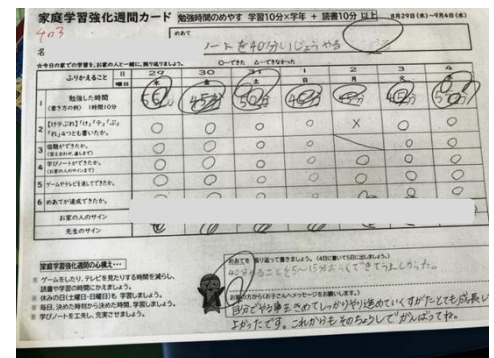 家庭学習強化週間カード 勉強時間のめやす 学習10分×学年 + 読書10分 以上 8月29日(木)~9月4日(水)
4の3
めあて
ノートを40分いじょうやる
名
☆今日の家での学習を、お家の人と一緒に、振り返りましょう。 ○…できた △…できなかった
ふりかえること 日 29 30 31 1 2 3 4
曜日 木 金 土 日 月 火 水
1 勉強した時間
(書き方の例) 1時間10分
2 【けテぶれ】「け」「テ」「ぶ」「れ」4つとも書いたか。 ○ ○ ○ ○ × ○ ○
3 宿題ができたか。 ○ ○ ○ ○ ○ ○
4 学びノートができたか。
(お家の人のサインまで) ○ ○ ○ ○ ○ ○ ○
5 ゲームやテレビを減してできたか。 ○ ○ ○ ○ ○ ○ ○
6 めあてが達成できたか。 ○ ○ ○ ○ ○ ○ ○
お家の人のサイン
先生のサイン
家庭学習強化週間の心構え…
※ ゲームをしたり、テレビを見たりする時間を減らし、読書や学習の時間にかえましょう。
※ 休みの日(土曜日・日曜日)も 学習しましょう。
※ 毎日、決めた時間から決めた時間、学習しましょう。
※ 学びノートを工夫し、充実させましょう。
めあてを 振り返って書きましょう。(4日に書いて5日に出しましょう)
40分やることを5~15分おおくできてうれしかった。
お家の方から(お子さんへメッセージをお願いします。)
自分でやる事をきめてしっかりやり進めていくすがたとても成長し
よかったです。これからもそのちょうしでがんばってね。